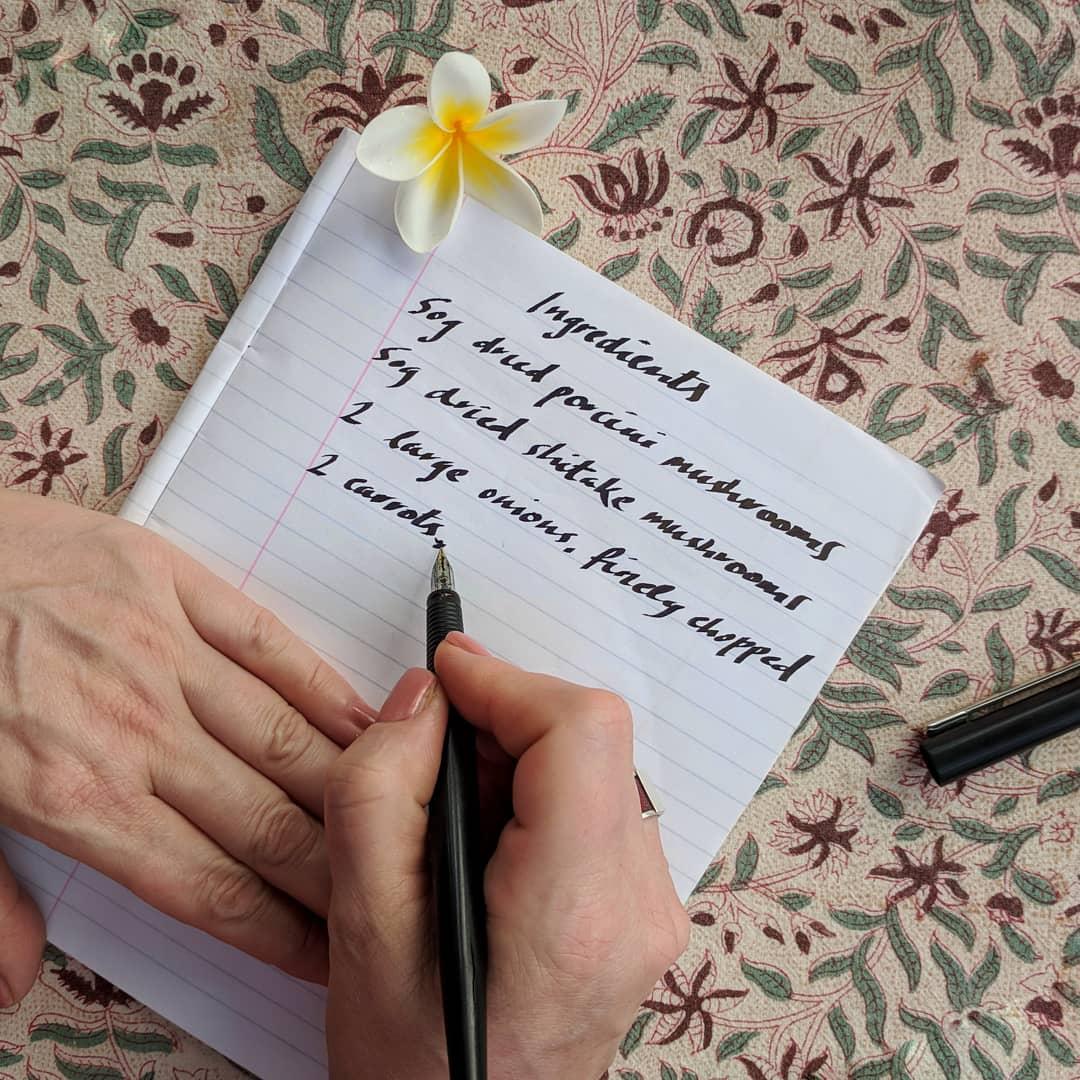 Ingredients
50g dried porcini mushrooms
50g dried shitake mushrooms
2 large onions, finely chopped
2 carrots,